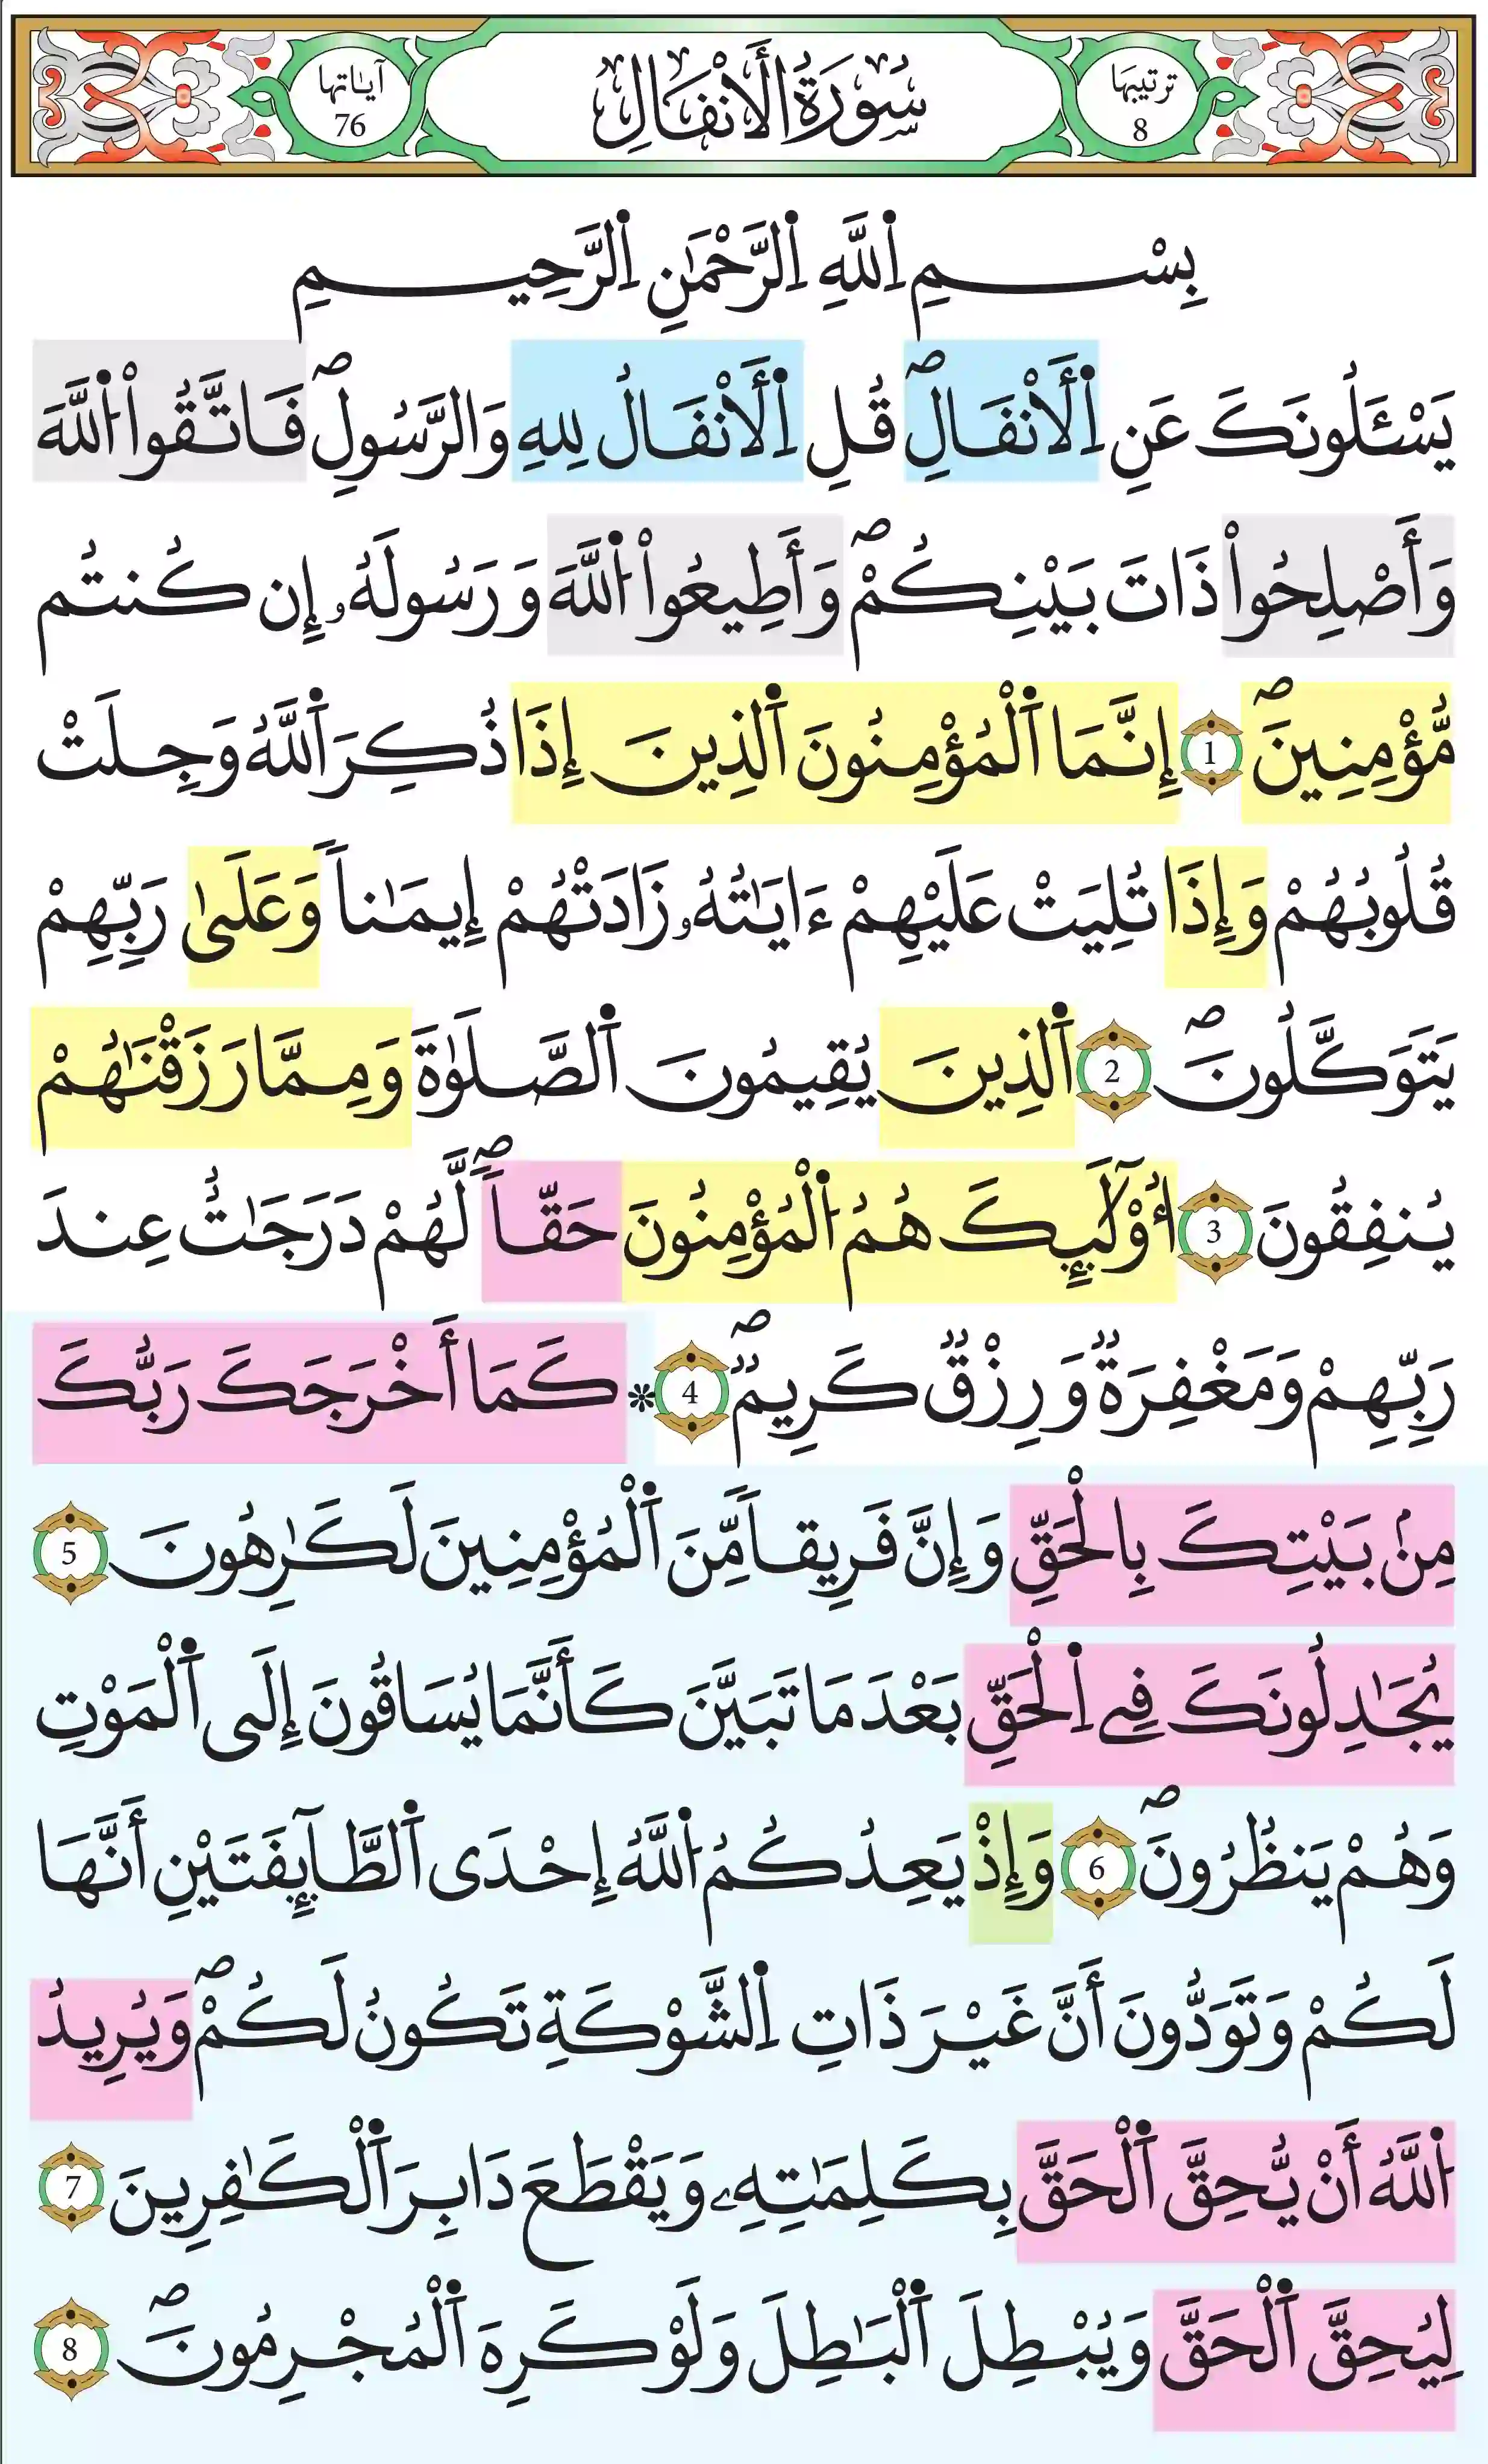 ترتيبها
8
سُورَةُ الْأَنْفَالِ
آياتها
76
بِسْمِ اِ۬للَّهِ اِ۬لرَّحْمَٰنِ اِ۬لرَّحِيمِ
يَسْـَٔلُونَكَ عَنِ اِ۬لَانْفَالِۖ قُلِ اِ۬لَانْفَالُ لِلهِ وَالرَّسُولِۖ فَاتَّقُواْ اُ۬للَّهَ
وَأَصْلِحُواْ ذَاتَ بَيْنِكُمْۖ وَأَطِيعُواْ اُ۬للَّهَ وَرَسُولَهُۥ إِن كُنتُم
مُّؤْمِنِينَۖ 1 إِنَّمَا اَ۬لْمُؤْمِنُونَ اَ۬لذِينَ إِذَا ذُكِرَ اَ۬للَّهُ وَجِلَتْ
قُلُوبُهُمْ وَإِذَا تُلِيَتْ عَلَيْهِمْ ءَايَٰتُهُۥ زَادَتْهُمْ إِيمَٰناٗ وَعَلَىٰ رَبِّهِمْ
يَتَوَكَّلُونَۖ 2 اَ۬لذِينَ يُقِيمُونَ اَ۬لصَّلَوٰةَ وَمِمَّا رَزَقْنَٰهُمْ
يُنفِقُونَ 3 أُوْلَٰٓئِكَ هُمُ اُ۬لْمُؤْمِنُونَ حَقّاٗۖ لَّهُمْ دَرَجَٰتٌ عِندَ
رَبِّهِمْ وَمَغْفِرَةٞ وَرِزْقٞ كَرِيمٞۖ 4 * كَمَا أَخْرَجَكَ رَبُّكَ
مِنۢ بَيْتِكَ بِالْحَقِّ وَإِنَّ فَرِيقاٗ مِّنَ اَ۬لْمُؤْمِنِينَ لَكَٰرِهُونَ 5
يُجَٰدِلُونَكَ فِے اِ۬لْحَقِّ بَعْدَ مَا تَبَيَّنَ كَأَنَّمَا يُسَاقُونَ إِلَى اَ۬لْمَوْتِ
وَهُمْ يَنظُرُونَۖ 6 وَإِذْ يَعِدُكُمُ اُ۬للَّهُ إِحْدَى اَ۬لطَّآئِفَتَيْنِ أَنَّهَا
لَكُمْ وَتَوَدُّونَ أَنَّ غَيْرَ ذَاتِ اِ۬لشَّوْكَةِ تَكُونُ لَكُمْۖ وَيُرِيدُ
اُ۬للَّهُ أَنْ يُّحِقَّ اَ۬لْحَقَّ بِكَلِمَٰتِهِۦ وَيَقْطَعَ دَابِرَ اَ۬لْكَٰفِرِينَ 7
لِيُحِقَّ اَ۬لْحَقَّ وَيُبْطِلَ اَ۬لْبَٰطِلَ وَلَوْ كَرِهَ اَ۬لْمُجْرِمُونَۖ 8